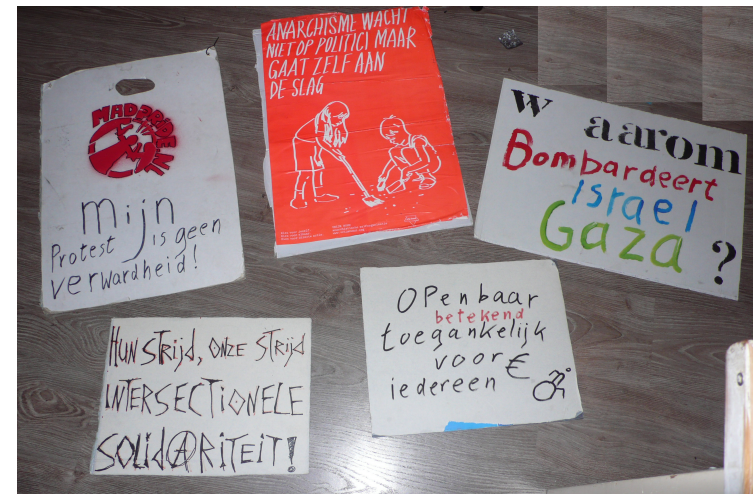 MADPRIDE.NL
mijn
Protest is geen
verwardheid!
ANARCHISME WACHT
NIET OP POLITICI MAAR
GAAT ZELF AAN
DE SLAG
Waarom
Bombardeert
Israel
Gaza?
HUN STRIJD, ONZE STRIJD
INTERSECTIONELE
SOLIDARITEIT!
OPenbaar
betekend
toegankelijk
voor €
iedereen